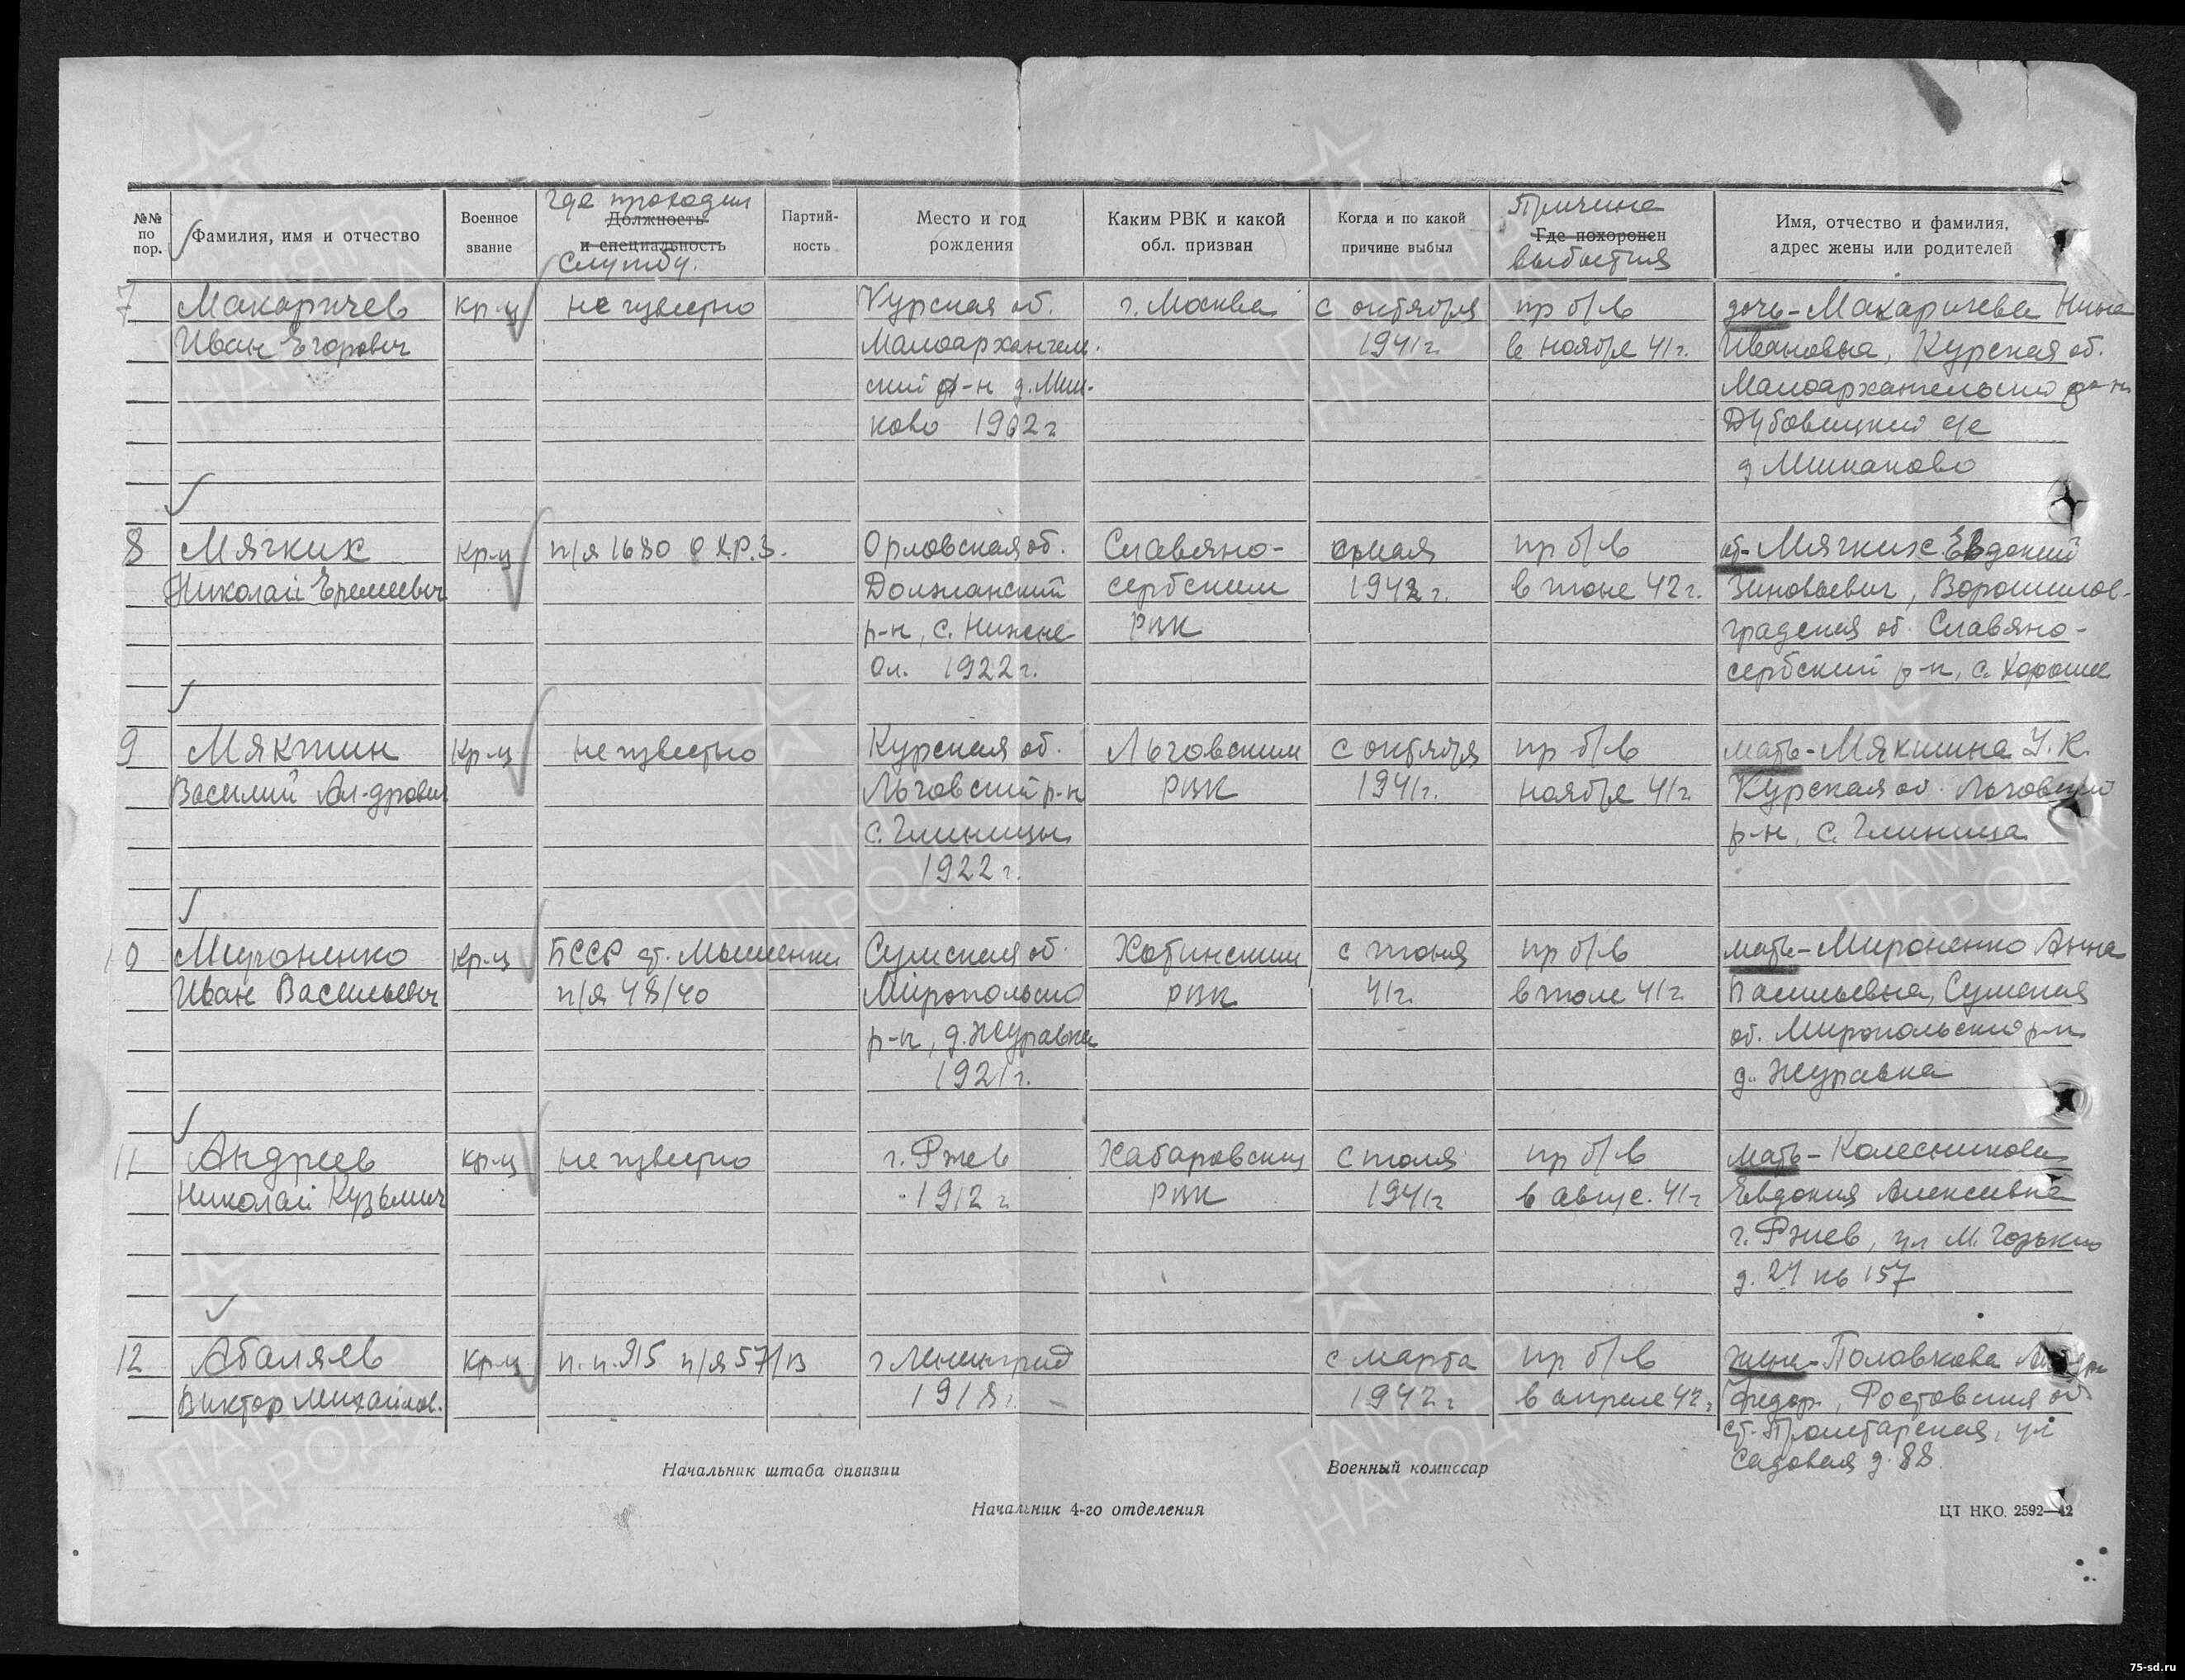 №№ по пор.
Фамилия, имя и отчество
Военное звание
где проходил
Должность
и специальность
службу.
Партий-
ность
Место и год
рождения
Каким РВК и какой
обл. призван
Когда и по какой
причине выбыл
Причина
Где похоронен
выбытия
Имя, отчество и фамилия,
адрес жены или родителей
7 Макаричев кр-ц не известно Курская об. г. Москва с октября пр б/в дочь - Макаричева Нина
Иван Егорович Малоархангель- 1941 г. в ноябре 41 г. Ивановна, Курская об.
ский р-н д. Миш- Малоархангельский р-н
ково 1902 г Дубовицкий с/с
д Мишаково
8 Мягких кр-ц п/я 1680 Орловская об. Славяно- с мая пр б/в от - Мягких Евдоким
Николай Еремеевич Должанский сербским 1942 г. в июне 42 г. Зиновьевич, Ворошилов-
р-н, с. Нижне РВК градская об. Славяно-
Ол. 1922 г. сербский р-н, с. Хорошее
9 Мякшин кр-ц не известно Курская об. Льговским с октября пр б/в мать - Мякшина У. К.
Василий Ал-дрович Льговский р-н РВК 1941 г. ноябре 41 г. Курская об. Льговский
с. Глиницы р-н, с. Глиница
1922 г.
10 Мироненко кр-ц БССР ст. Сумская об. Хотинским с июня пр б/в мать - Мироненко Анна
Иван Васильевич п/я 48/40 Миропольский РВК 41 г. в июле 41 г. Васильевна, Сумская
р-н, д. Журавка об. Миропольский р-н
1921 г. д. Журавка
11 Андреев кр-ц не известно г. Ржев Хабаровским с июля пр б/в мать - Колесникова
Николай Кузьмич 1912 г РВК 1941 г в авгус. 41 г Евдокия Алексеевна
г. Ржев, ул М. Горького
д. 21 кв 157
12 Абаляев кр-ц п. п. 915 п/я 57/в г Ленинград с марта пр б/в жена - Половкова
Виктор Михайлов. 1918 г. 1942 г в апреле 42 г Федор., Ростовская об.
ст. Пролетарская, ул
Садовая д. 88.
Начальник штаба дивизии
Военный комиссар
Начальник 4-го отделения
ЦТ НКО. 2592—42
ПАМЯТЬ НАРОДА
75-sd.ru